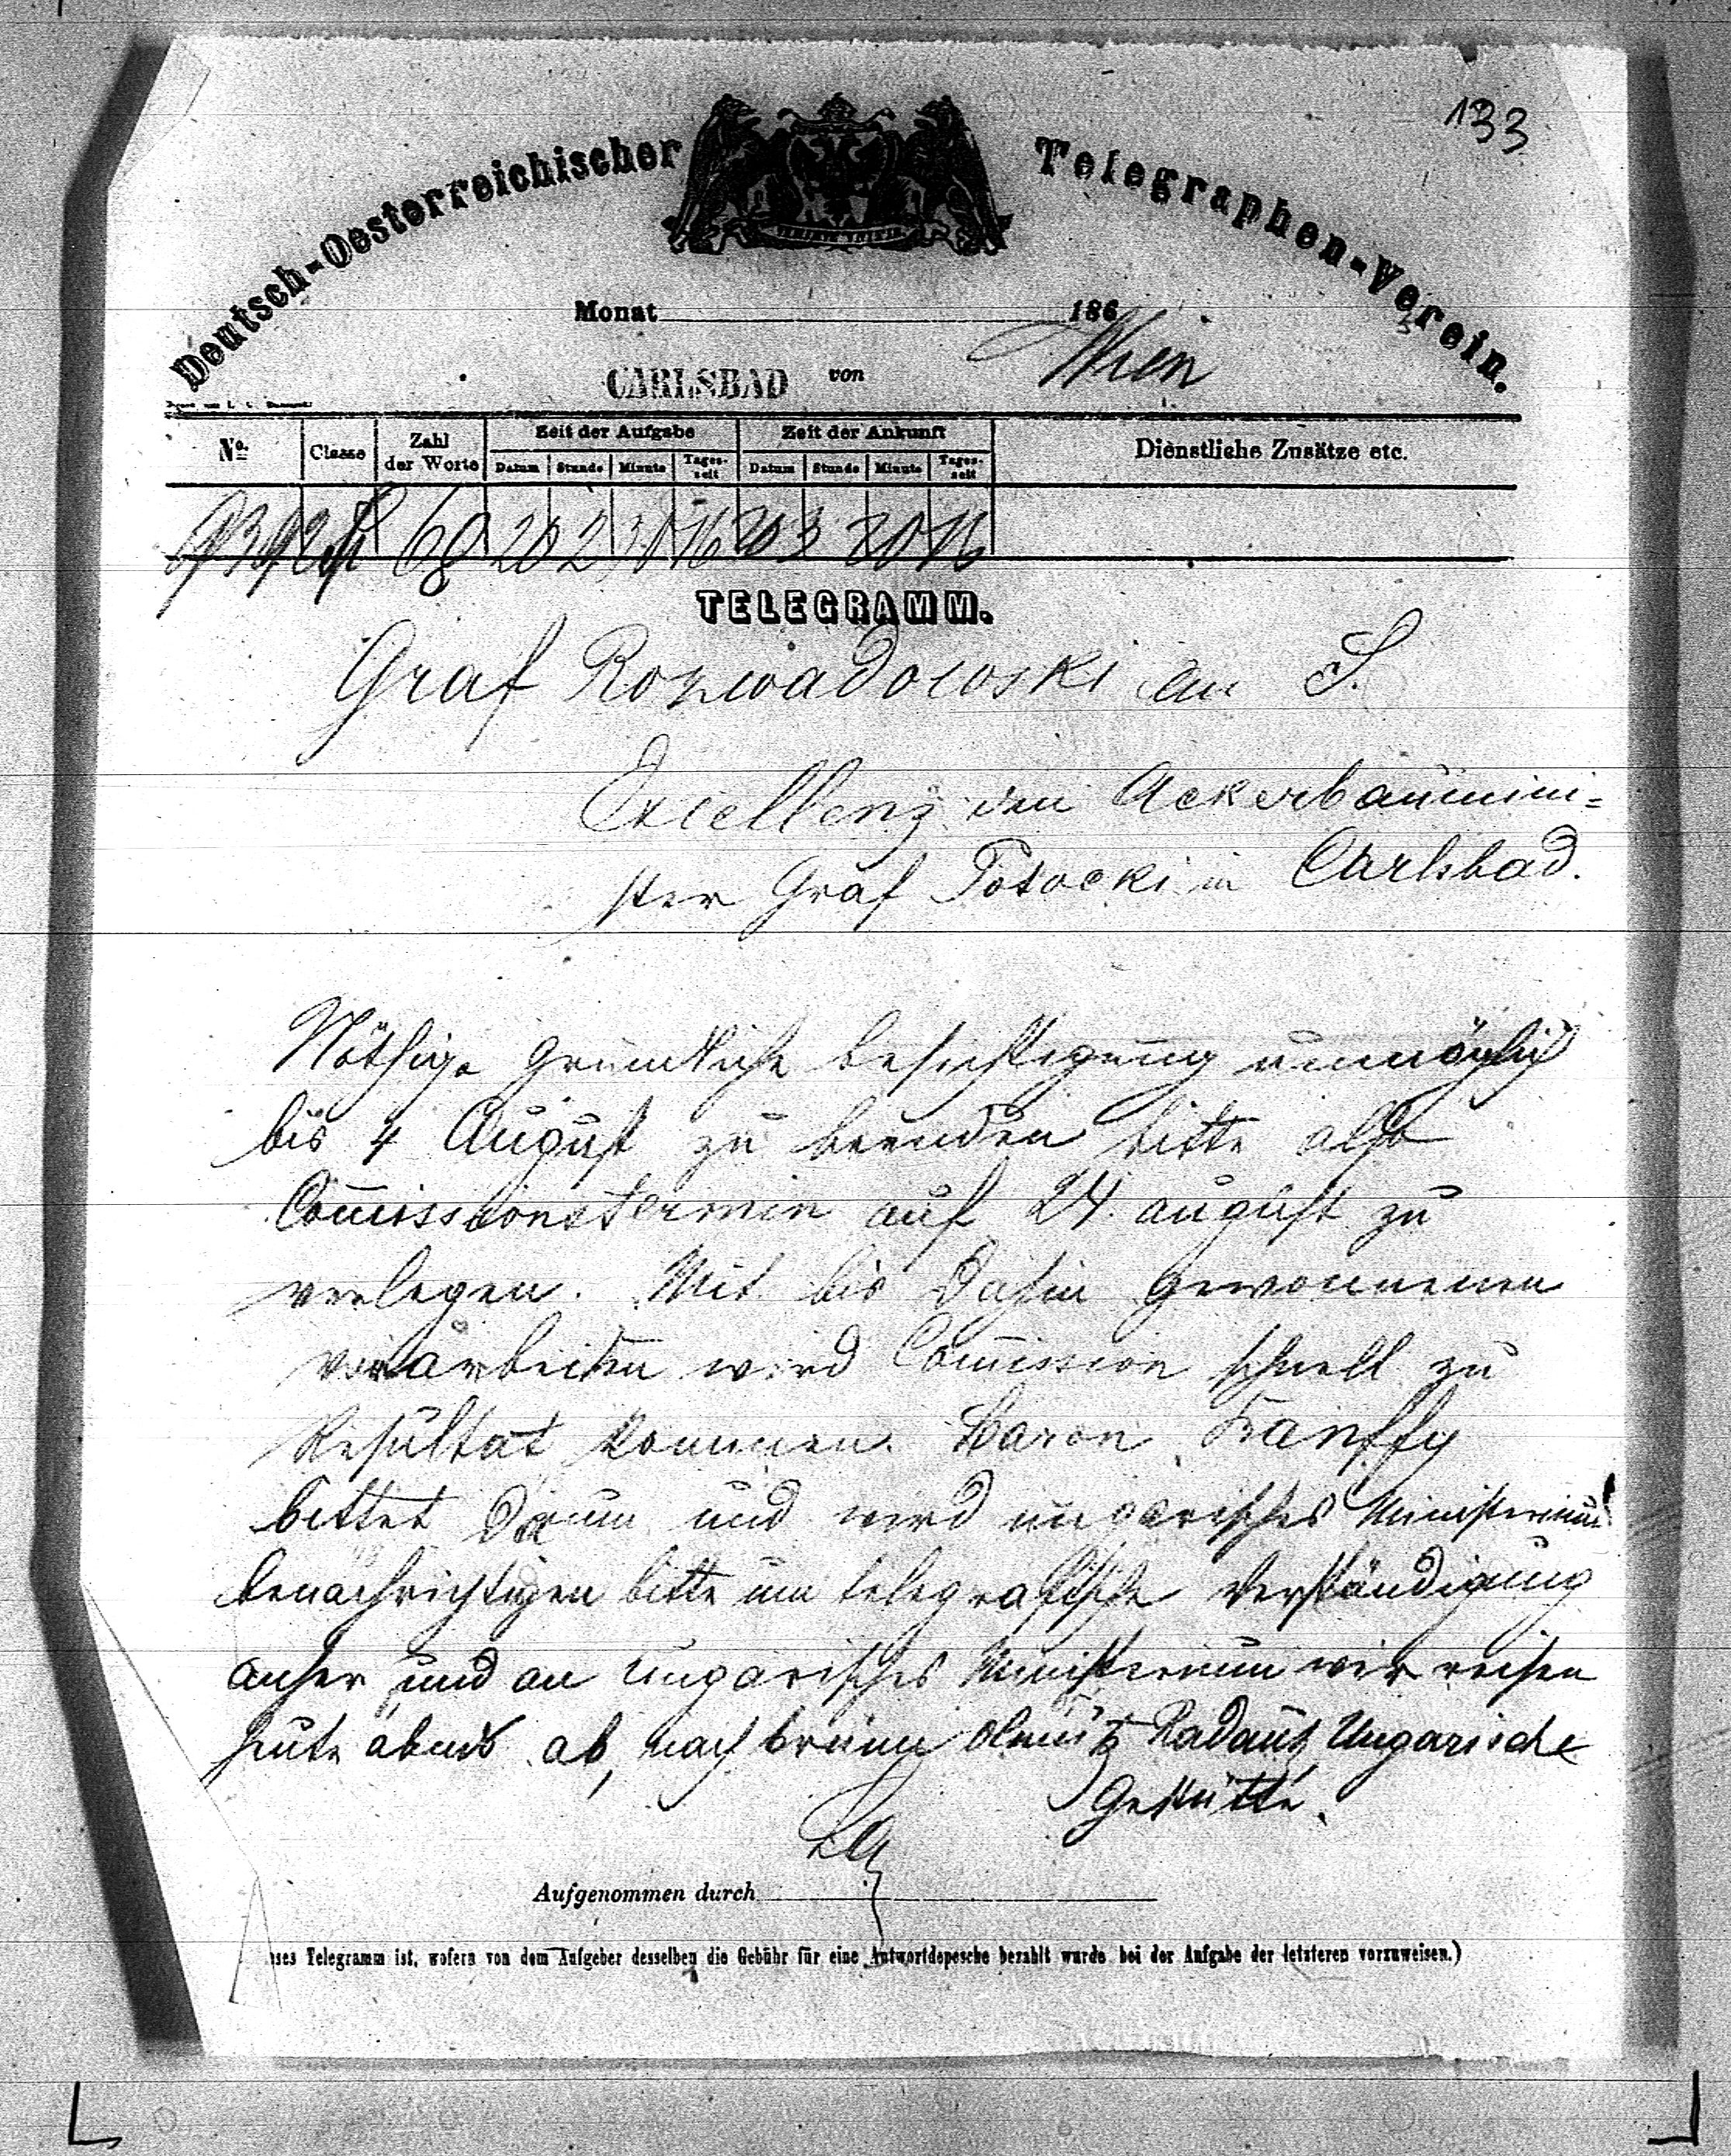 133
Deutsch-Oesterreichischer Telegraphen-Verein.
Monat 186
CARLSBAD von Wien
No. Classe Zahl der Worte Zeit der Aufgabe Zeit der Ankunft Dienstliche Zusätze etc.
Datum Stunde Minute Tageszeit Datum Stunde Minute Tageszeit
68 20 2 30 20 3
TELEGRAMM.
Graf Rozwadowski an S.
Excellenz den Ackerbaumini=
ster Graf Potocki in Carlsbad.
Nöthige gründliche besichtigung unmöglich
bis 4 August zu beenden bitte also
Com̅issionstermin auf 24. august zu
verlegen. Mit bis dahin gewonnenen
vorarbeiten wird Com̅ission schnell zu
Resultat kommen. Baron Banffy
bittet darum und wird ungarisches Ministerium
benachrichtigen bitte um telegrafische Verständigung
anher und an ungarisches Ministerium wir reisen
heute abends ab, nach brünn olmütz Radautz, Ungarische
Gestütte.
Aufgenommen durch
ses Telegramm ist, wofern von dem Aufgeber desselben die Gebühr für eine Antwortdepesche bezahlt wurde bei der Aufgabe der letzteren vorzuweisen.)